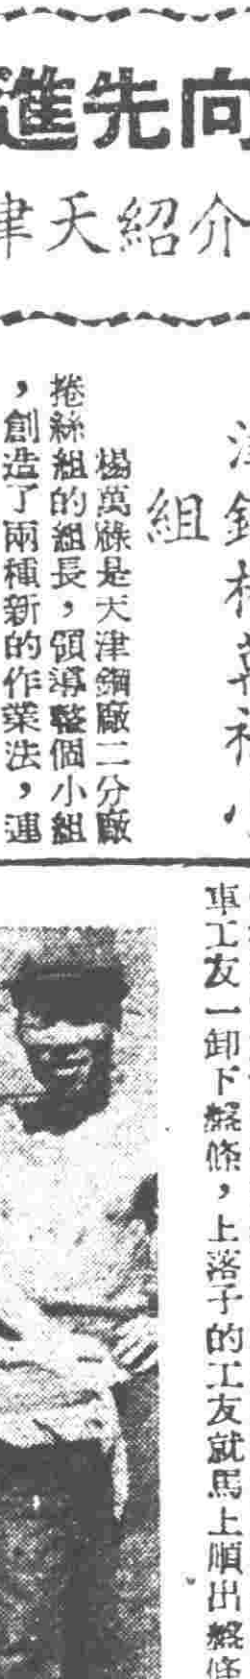 向先進
介紹天津
組
楊萬祿是天津鋼廠二分廠
捲絲組的組長，領導整個小組
，創造了兩種新的作業法，連
車工友一卸下盤條，上落子的工友就馬上順出盤條